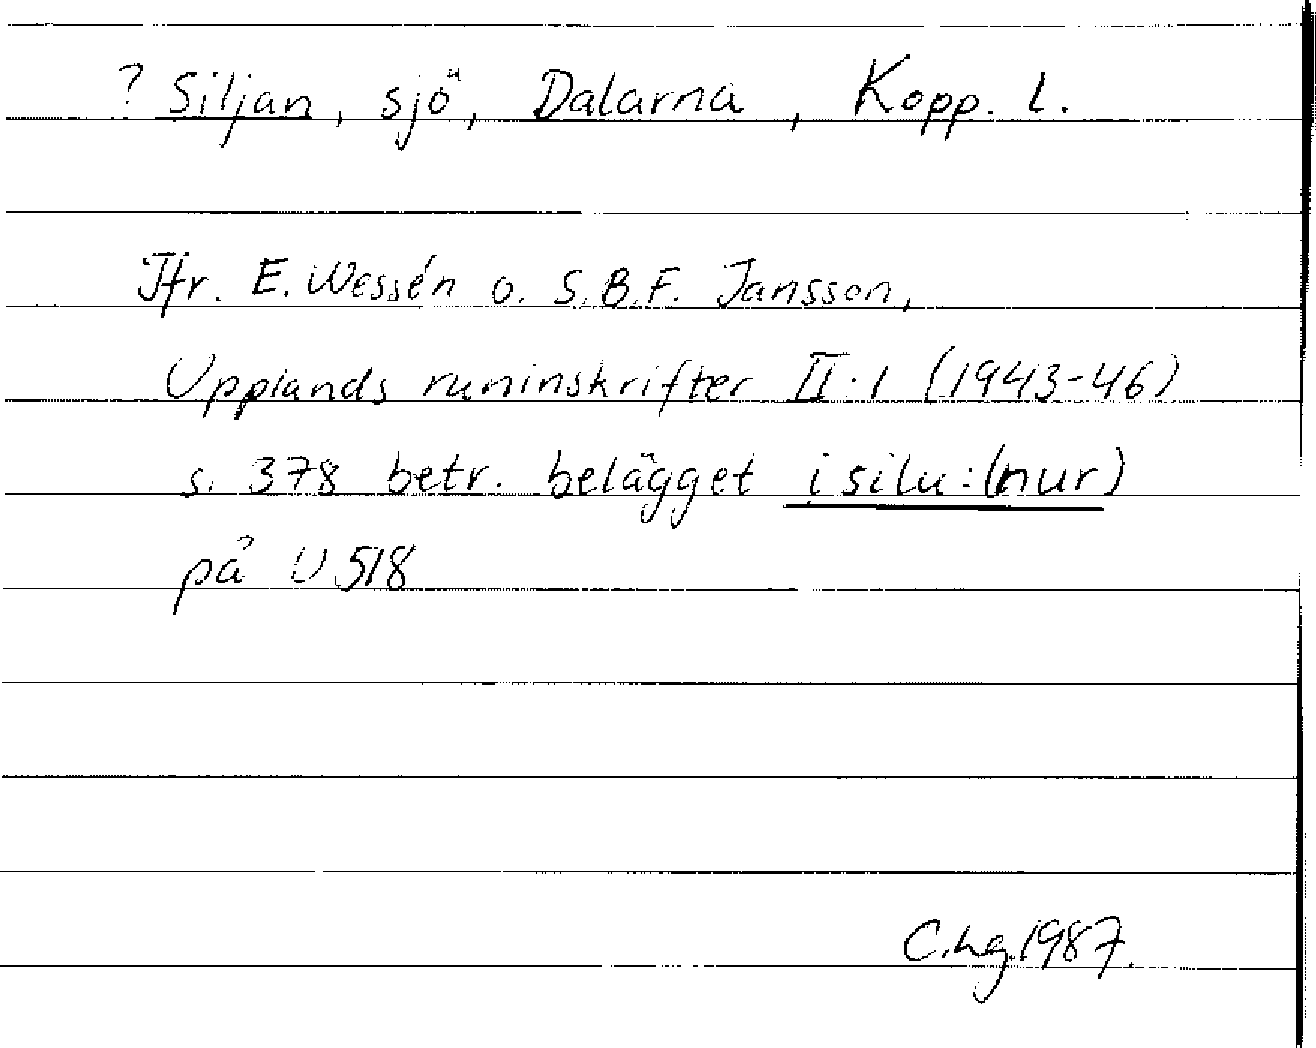 ? Siljan, sjö, Dalarna, Kopp. l.
Jfr. E. Wessén o. S.B.F. Jansson,
Upplands runinskrifter II:1 (1943-46)
s. 378 betr. belägget i silu:(nur)
på U 518
C.hg.1987.